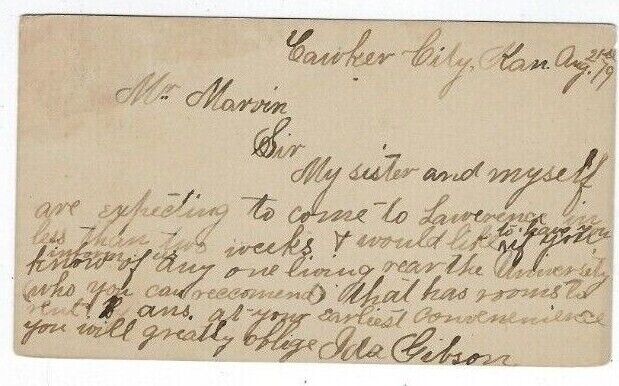 Cawker City, Kan. Aug. 21st /79
Mr Marvin
Sir
My sister and myself
are expecting to come to Lawerence in
less than two weeks & would like to have you
inform us if you
know of any one living near the University
(who you can reccomend) that has rooms to
rent. By ans. at your earliest convenenience
you will greatly oblige Ida Gibson